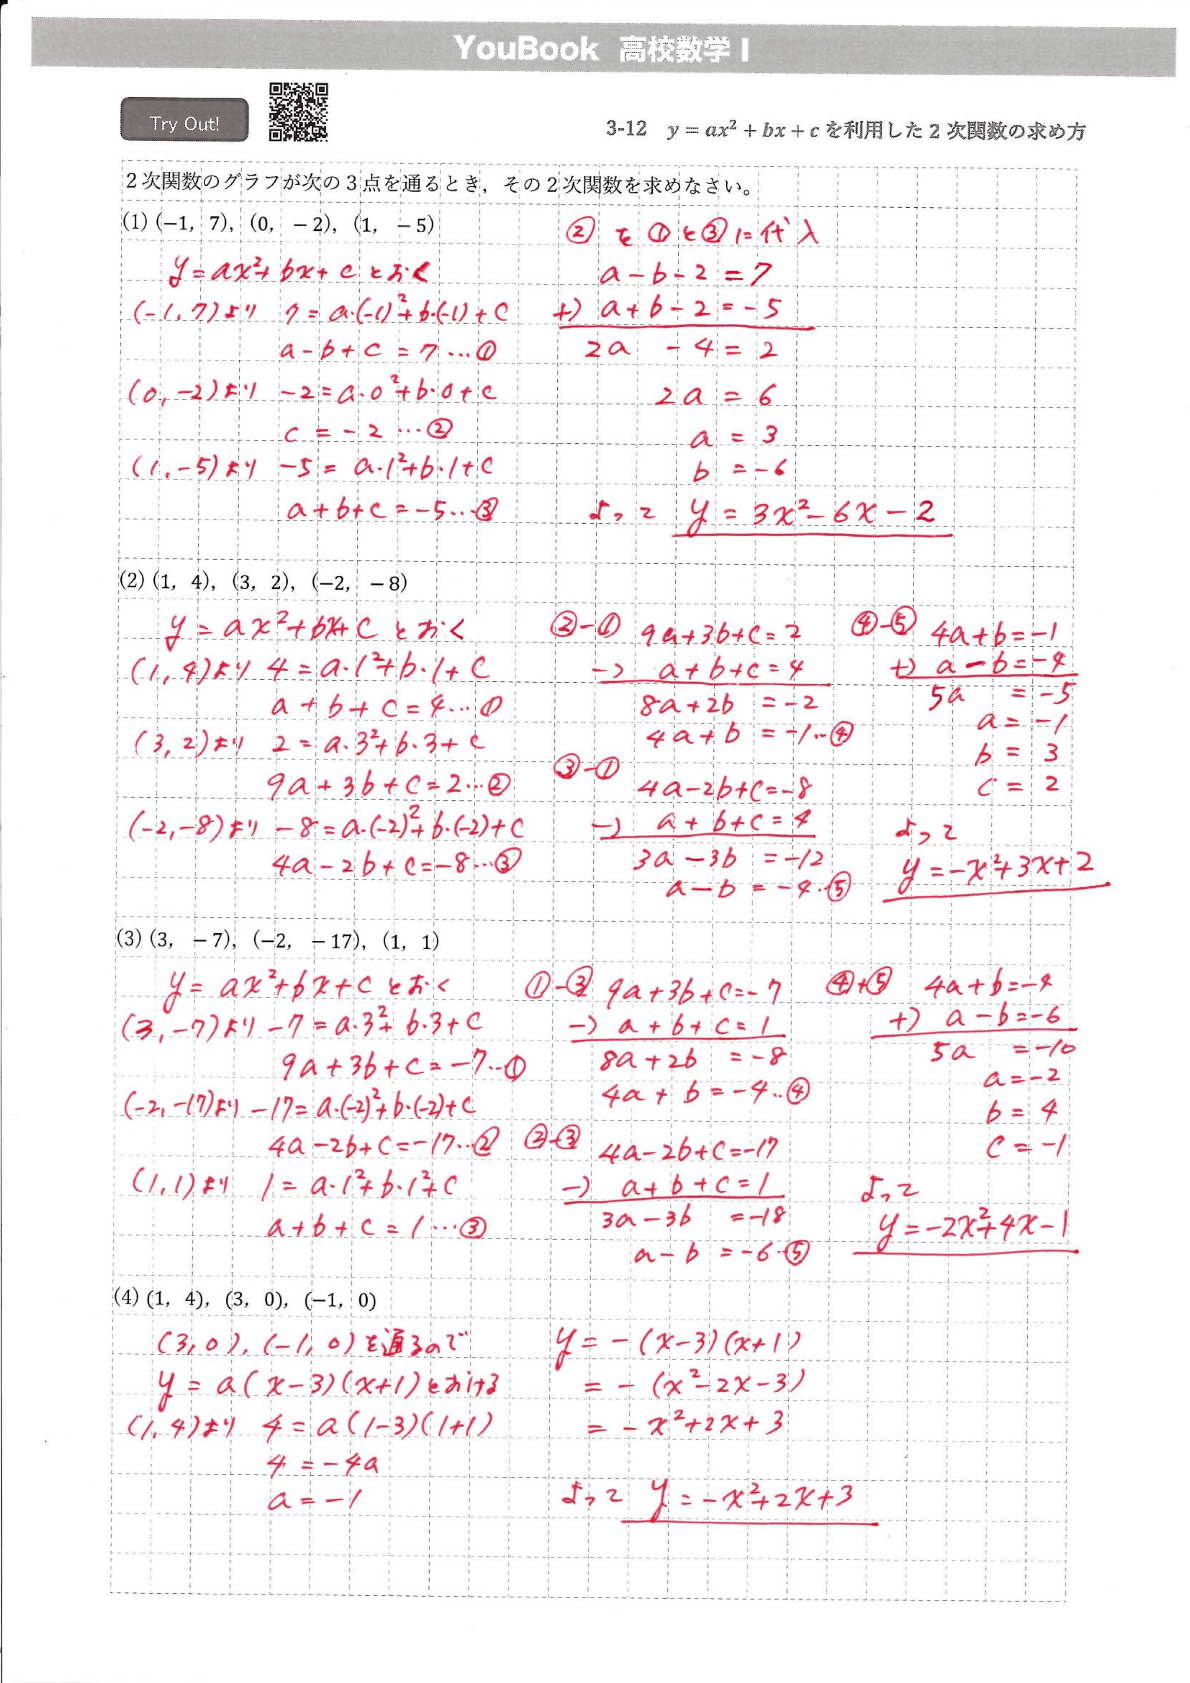 YouBook 高校数学 I
Try Out!
3-12 y = ax² + bx + c を利用した 2 次関数の求め方
2次関数のグラフが次の3点を通るとき，その2次関数を求めなさい。
(1) (−1, 7), (0, −2), (1, −5)
y = ax² + bx + c とおく
(-1, 7)より 7 = a·(-1)² + b·(-1) + c
a − b + c = 7 … ①
(0, −2)より −2 = a·0² + b·0 + c
c = −2 … ②
(1, −5)より −5 = a·1² + b·1 + c
a + b + c = −5 … ③
②を①と③に代入
a − b − 2 = 7
+) a + b − 2 = −5
2a − 4 = 2
2a = 6
a = 3
b = −6
よって y = 3x² − 6x − 2
(2) (1, 4), (3, 2), (−2, −8)
y = ax² + bx + c とおく
(1, 4)より 4 = a·1² + b·1 + c
a + b + c = 4 … ①
(3, 2)より 2 = a·3² + b·3 + c
9a + 3b + c = 2 … ②
(-2, -8)より −8 = a·(-2)² + b·(-2) + c
4a − 2b + c = −8 … ③
②−① 9a + 3b + c = 2
−) a + b + c = 4
8a + 2b = −2
4a + b = −1 … ④
③−①
4a − 2b + c = −8
−) a + b + c = 4
3a − 3b = −12
a − b = −4 … ⑤
④−⑤ 4a + b = −1
+) a − b = −4
5a = −5
a = −1
b = 3
c = 2
よって
y = −x² + 3x + 2
(3) (3, −7), (−2, −17), (1, 1)
y = ax² + bx + c とおく
(3, −7)より −7 = a·3² + b·3 + c
9a + 3b + c = −7 … ①
(-2, -17)より −17 = a·(-2)² + b·(-2) + c
4a − 2b + c = −17 … ②
(1, 1)より 1 = a·1² + b·1² + c
a + b + c = 1 … ③
①−③ 9a + 3b + c = −7
−) a + b + c = 1
8a + 2b = −8
4a + b = −4 … ④
②−③ 4a − 2b + c = −17
−) a + b + c = 1
3a − 3b = −18
a − b = −6 … ⑤
④+⑤ 4a + b = −4
+) a − b = −6
5a = −10
a = −2
b = 4
c = −1
よって
y = −2x² + 4x − 1
(4) (1, 4), (3, 0), (−1, 0)
(3, 0), (-1, 0)を通るので
y = a(x − 3)(x + 1)とおける
(1, 4)より 4 = a(1 − 3)(1 + 1)
4 = −4a
a = −1
y = −(x − 3)(x + 1)
= −(x² − 2x − 3)
= −x² + 2x + 3
よって y = −x² + 2x + 3